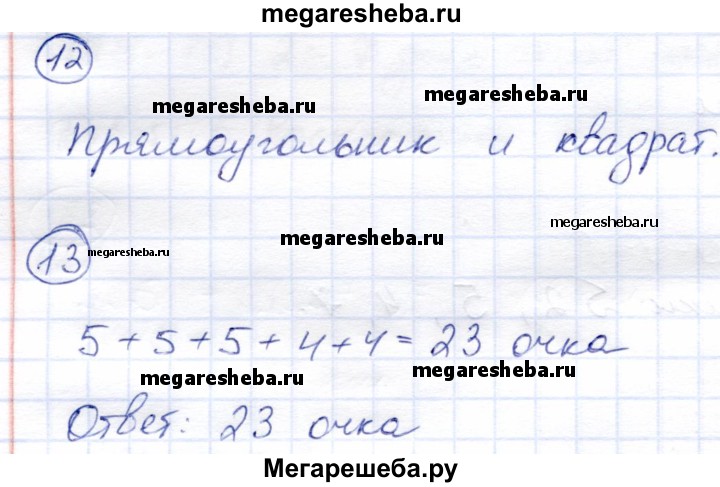 megaresheba.ru
12
megaresheba.ru megaresheba.ru
Прямоугольник и квадрат.
megaresheba.ru
13 megaresheba.ru megaresheba.ru
5+5+5+4+4=23 очка
megaresheba.ru megaresheba.ru
Ответ: 23 очка
Мегарешеба.ру